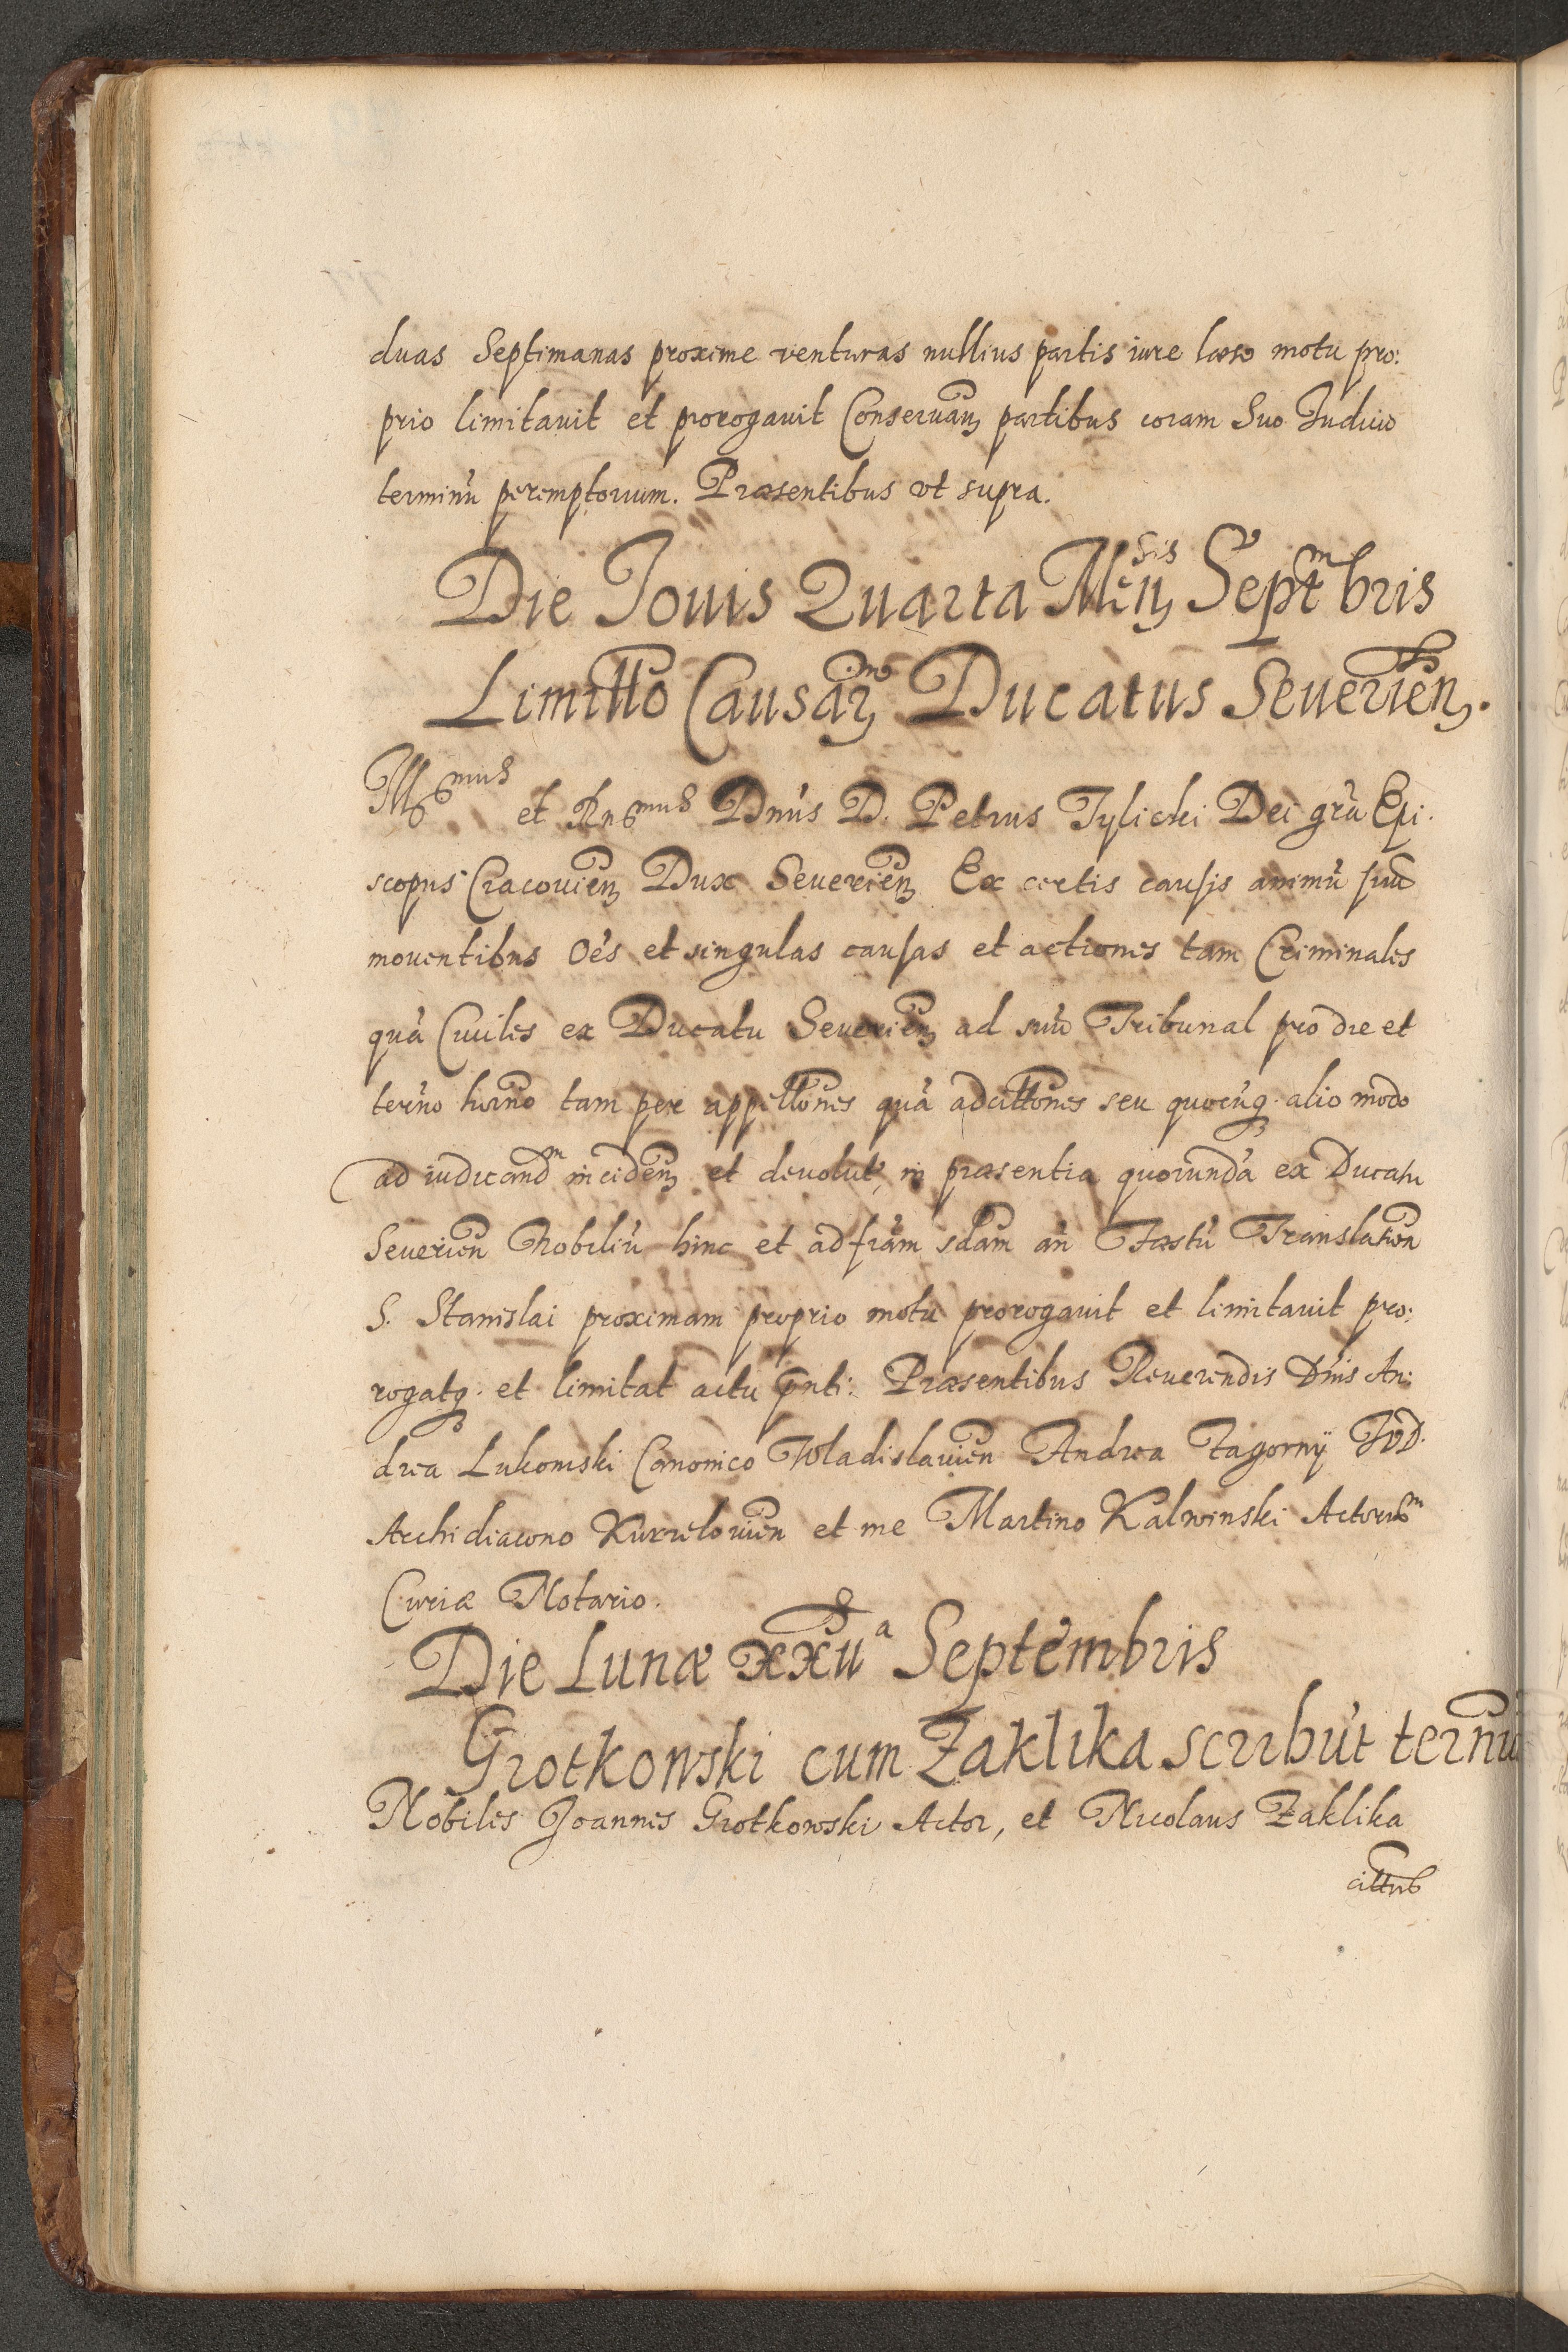 duas Septimanas proxime venturas nullius partis iure læso motu pro:
prio limitauit et prorogauit Conseruan̄ partibus coram Suo Iudicio
terminū peremptorium. Præsentibus vt supra.
Die Iouis Quarta Mēn̄sis Septmbris
Limitt̄o Causarm̄ Ducatus Seuerien̄.
Illmus et Rndmus Dnūs D. Petrus Tylicki Dei grā Epi:
scopus Cracouien̄ Dux Seuerien̄ Ex certis causis animū suū
mouentibus oēs et singulas causas et actiones tam Criminales
quā Ciuiles ex Ducatu Seuerien̄ ad suū Tribunal pro die et
ter̄no horno tam per appelltōnes quā adcittōnes seu quocūq. alio modo
ad iudicandm inciden̄ et deuolut, in præsentia quorundā ex Ducatu
Seuerien̄ Nobiliū hinc et ad friām sdam an̄ Fæstū Translation̄
S. Stanislai proximam proprio motu prorogauit et limitauit pro:
rogatq. et limitat actu pnti. Præsentibus Reuerendis Dn̄is An:
drea Lukomski Canonico Wladislauien̄ Andrea Zagorny IVD.
Archidiacono Kurzelouien̄ et me Martino Kalwinski Actorum
Curiæ Notario.
Die Lunæ xxiia Septembris
Grotkowski cum Zaklika scribūt ter̄nū
Nobiles Joannes Grotkowski Actor, et Nicolaus Zaklika
cittus